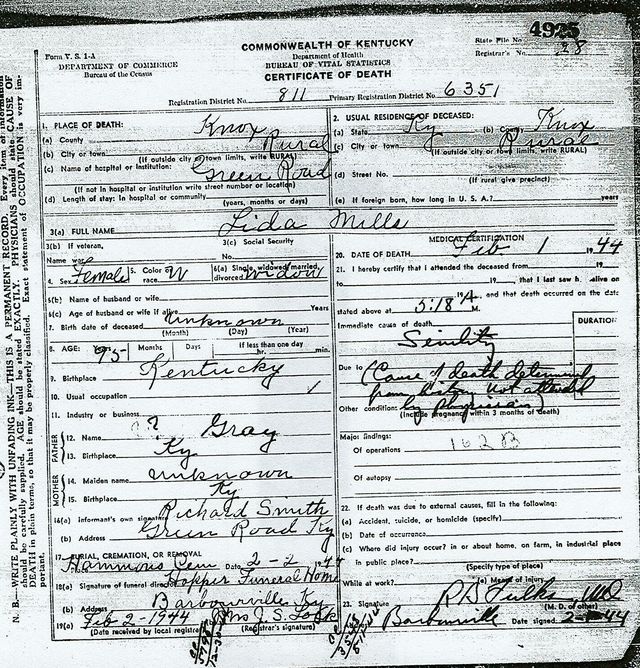 4925
Form V. S. 1-A
DEPARTMENT OF COMMERCE
Bureau of the Census
COMMONWEALTH OF KENTUCKY
Department of Health
BUREAU OF VITAL STATISTICS
CERTIFICATE OF DEATH
State File No.
Registrar's No. 28
Registration District No. 811 Primary Registration District No. 6351
1. PLACE OF DEATH:
(a) County Knox
(b) City or town Rural
(If outside city or town limits, write RURAL)
(c) Name of hospital or institution: Green Road
(If not in hospital or institution write street number or location)
(d) Length of stay: In hospital or community
(years, months or days)
2. USUAL RESIDENCE OF DECEASED:
(a) State Ky (b) County Knox
(c) City or town Rural
(If outside city or town limits, write RURAL)
(d) Street No.
(If rural give precinct)
(e) If foreign born, how long in U. S. A.? years
3(a) FULL NAME Lida Mills
3(b) If veteran,
Name war
3(c) Social Security
No.
4. Sex Female 5. Color or race W 6(a) Single, widowed, married, divorced Widow
6(b) Name of husband or wife
6(c) Age of husband or wife if alive Years
7. Birth date of deceased unknown
(Month) (Day) (Year)
8. AGE: Years 95 Months Days If less than one day
hr. min.
9. Birthplace Kentucky
10. Usual occupation
11. Industry or business
FATHER
12. Name ? Gray
13. Birthplace Ky
MOTHER
14. Maiden name unknown
15. Birthplace Ky
16(a) Informant's own signature Richard Smith
(b) Address Green Road Ky
17. BURIAL, CREMATION, OR REMOVAL
Hammons Cem Date 2-2 1944
18(a) Signature of funeral director Hopper Funeral Home
(b) Address Barbourville, Ky
19(a) Feb 2-1944 Mrs J. S. Lock
(Date received by local registrar) (Registrar's signature)
MEDICAL CERTIFICATION
20. DATE OF DEATH Feb 1 1944
21. I hereby certify that I attended the deceased from 19
to 19, that I last saw h alive on
19, and that death occurred on the date
stated above at 5:18 A M.
DURATION
Immediate cause of death
Senility
Due to (Cause of death determined
from history. Not attended
by physician)
Other condition:
(Include pregnancy within 3 months of death)
Major findings:
162B
Of operations
Of autopsy
22. If death was due to external causes, fill in the following:
(a) Accident, suicide, or homicide (specify)
(b) Date of occurrence
(c) Where did injury occur? in or about home, on farm, in industrial place
in public place?
(Specify type of place)
While at work? (e) Means of injury
23. Signature MD
(M. D. or other)
Address Barbourville Date signed 44
N. B.—WRITE PLAINLY WITH UNFADING INK—THIS IS A PERMANENT RECORD. Every item of information
should be carefully supplied. AGE should be stated EXACTLY. PHYSICIANS should state CAUSE OF
DEATH in plain terms, so that it may be properly classified. Exact statement of OCCUPATION is very im-
portant.